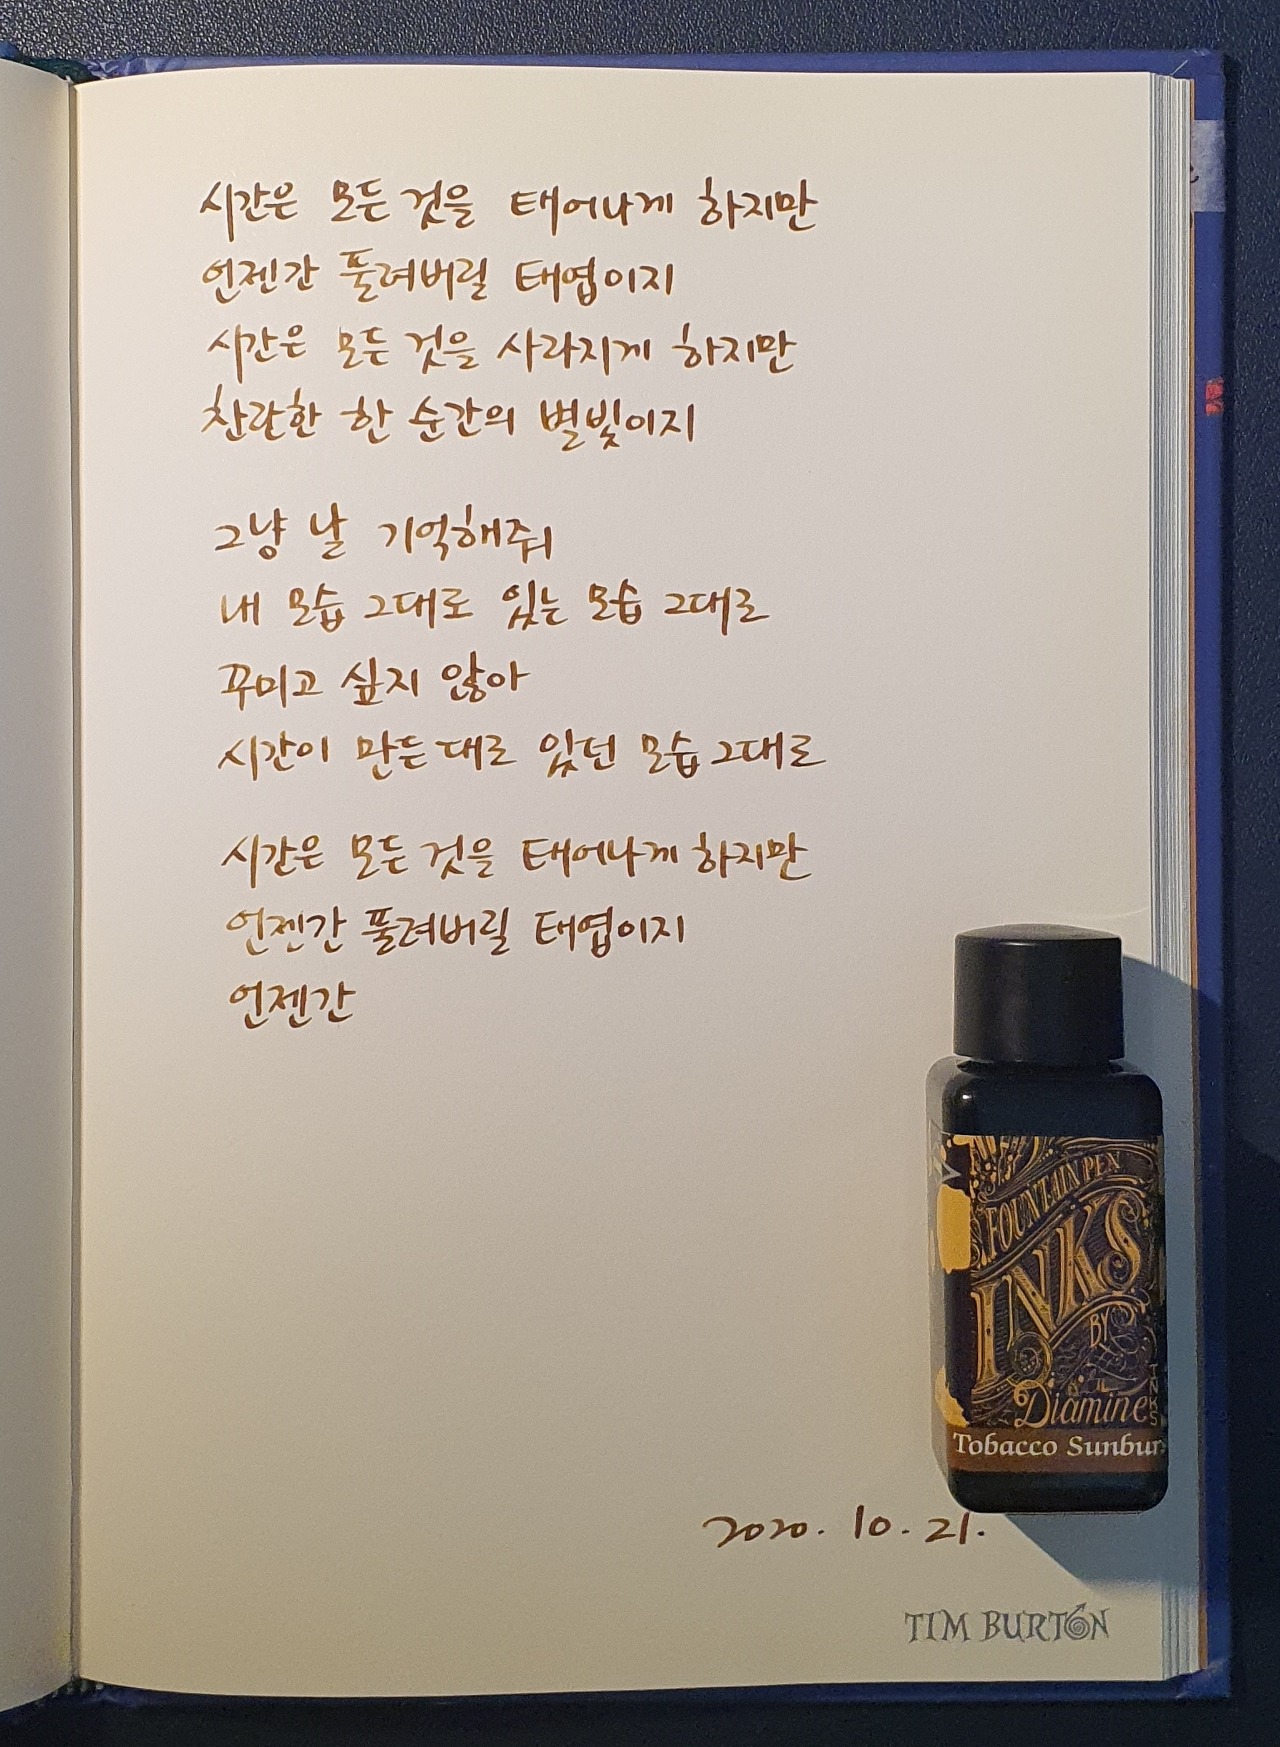 시간은 모든 것을 태어나게 하지만
언젠간 풀려버릴 태엽이지
시간은 모든 것을 사라지게 하지만
찬란한 한 순간의 별빛이지
그냥 날 기억해줘
내 모습 그대로 있는 모습 그대로
꾸미고 싶지 않아
시간이 만든대로 있던 모습 그대로
시간은 모든 것을 태어나게 하지만
언젠간 풀려버릴 태엽이지
언젠간
FOUNTAIN PEN
INKS
BY
Diamine
INKS
Tobacco Sunbur
2020. 10. 21.
TIM BURTON